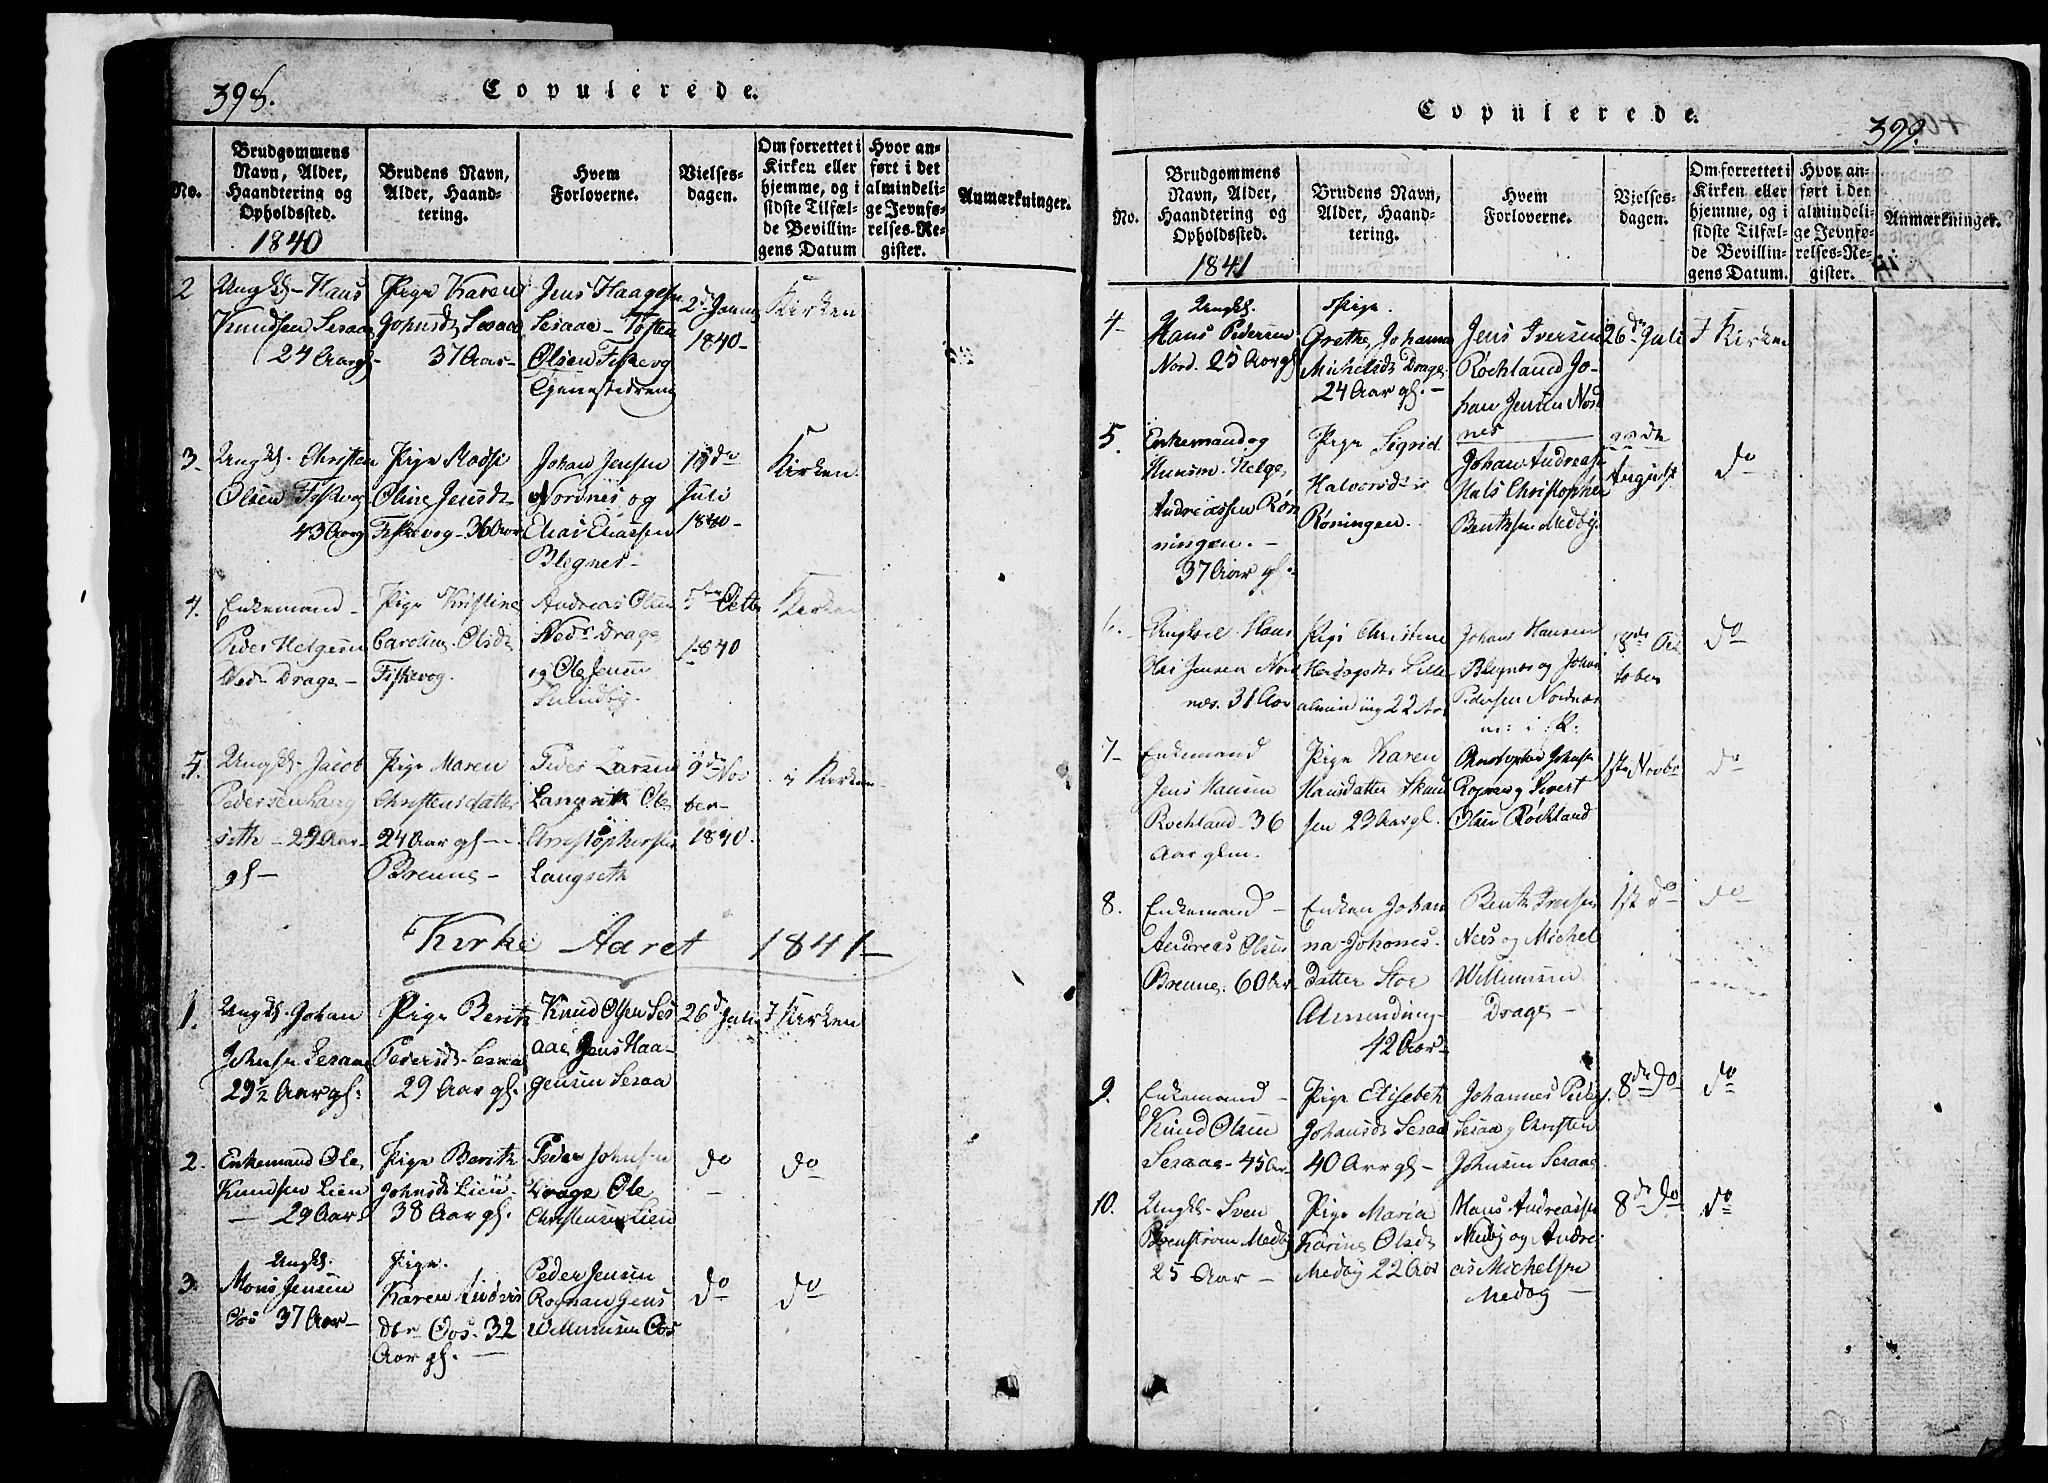 398.
Copulerede.
No.
Brudgommens
Navn, Alder,
Haandtering og
Opholdssted.
1840
Brudens Navn,
Alder, Haand-
tering.
Hvem
Forloverne.
Vielses-
dagen.
Om forrettet i
Kirken eller
hjemme, og i
sidste Tilfæl-
de Bevillin-
gens Datum
Hvor an-
ført i det
almindeli-
ge Jevnfø-
relses-Re-
gister.
Anmærkninger.
2
Ungk. Hans
Knudsen Sesaae
24 Aar
Pige Karen
Johnsd. Sesaae
37 Aar
Jens Haagensen
Sesaae
Olsen Fiskevog
1840
Kirken
3.
Ungk. Christen
Olsen Fiskevog
43 Aar
Pige
Oline Jensdr
Fiskevog 36 Aar
Johan Jensen
Nordnes og
Elias Eliassen
Blegnes
Juli
1840
Kirken
4.
Enkemand
Peder Helgesen
Nedr Drage
Pige Kristine
Caroline Olsdr
Fiskevog.
Andreas Olsen
Nedr Drage
og Ole Jensen
1840
Kirken
5.
Ungk. Jacob
Pedersen Lang
seth 29 Aar
gl
Pige Maren
Christensdatter
24 Aar gl
Brenne
Peder Larsen
Langseth Ole
Christophersen
Langseth
9de Nov
ber
1840.
i Kirken
Kirke Aaret 1841
1.
Ungk. Johan
Johnsen Sesaae
29½ Aar gl.
Pige Berith
Pedersdr Sesaa
29 Aar gl.
Knud Olsen Ses
aae Jens Haa-
gensen Sesaa
26 Juli
I Kirken
2.
Enkemand Ole
Knudsen Lien
29 Aar
Pige Berith
Johnsdr Lien
38 Aar gl.
Peder Johnsen
Drage Ole
Christensen Lien
do
do
3.
Ungk.
Mons Jensen
Oos 37 Aar
Pige.
Karen
dtr Oos 32
Aar gl.
Peder Jensen
Rognan Jens
Willumsen Oos
do
do
399.
Copulerede.
No.
Brudgommens
Navn, Alder,
Haandtering og
Opholdssted.
1841
Brudens Navn,
Alder, Haand-
tering.
Hvem
Forloverne.
Vielses-
dagen.
Om forrettet i
Kirken eller
hjemme, og i
sidste Tilfæl-
de Bevillin-
gens Datum.
Hvor an-
ført i det
almindeli-
ge Jevnfø-
relses-Re-
gister.
Anmærkninger.
4
Ungk.
Hans Pedersen
Nord. 25 Aar gl
Pige.
Grethe Johanna
Michelsdr Drage
24 Aar gl.
Jens Iversen
Rochland Jo-
han Jensen Nord
nes
26de Juli
I Kirken
5.
Enkemand og
Huusm. Helge
Andreassen Røn
ningen.
37 Aar gl.
Pige Sigrid
Halvorsdr
Røningen.
Johan Andreasen
Hals Christopher
Bentsen Medby.
August
do
6.
Ungkarl Hans
Olai Jensen Nord
næs. 31 Aar
Pige Christine
Lille
alminding 22 Aar
Johan Hansen
Blegnæs og Johan
Pedersen Nordnæs
Oc
tober
do
7
Enkemand
Jens Hansen
Rochland 36
Aar glm.
Pige Karen
Hansdatter
sen 23 Aar gl.
Christopher Johnsen
Rognan og Sivert
Olsen Rochland
1ste Novbr
do
8.
Enkemand
Andreas Olsen
Brenne. 60 Aar
Enken Johan
na Johanes
datter Stor
Almending
42 Aar
Benth Iversen
Nes og Michel
Willumsen
Drage
1ste do
do
9.
Enkemand
Knud Olsen
Sesaae 45 Aar
Pige Elisebeth
Johansdr Sesaa
40 Aar gl
Johannes Peders.
Sesaa og Christen
Johnsen Sesaae
8de do
do
10.
Ungk. Sven
Medby
25 Aar
Pige Maria
Karine Olsdr
Medby 22 Aar
Hans Andreassen
Medby og Andre
as Michelsen
Medby
8de do
do